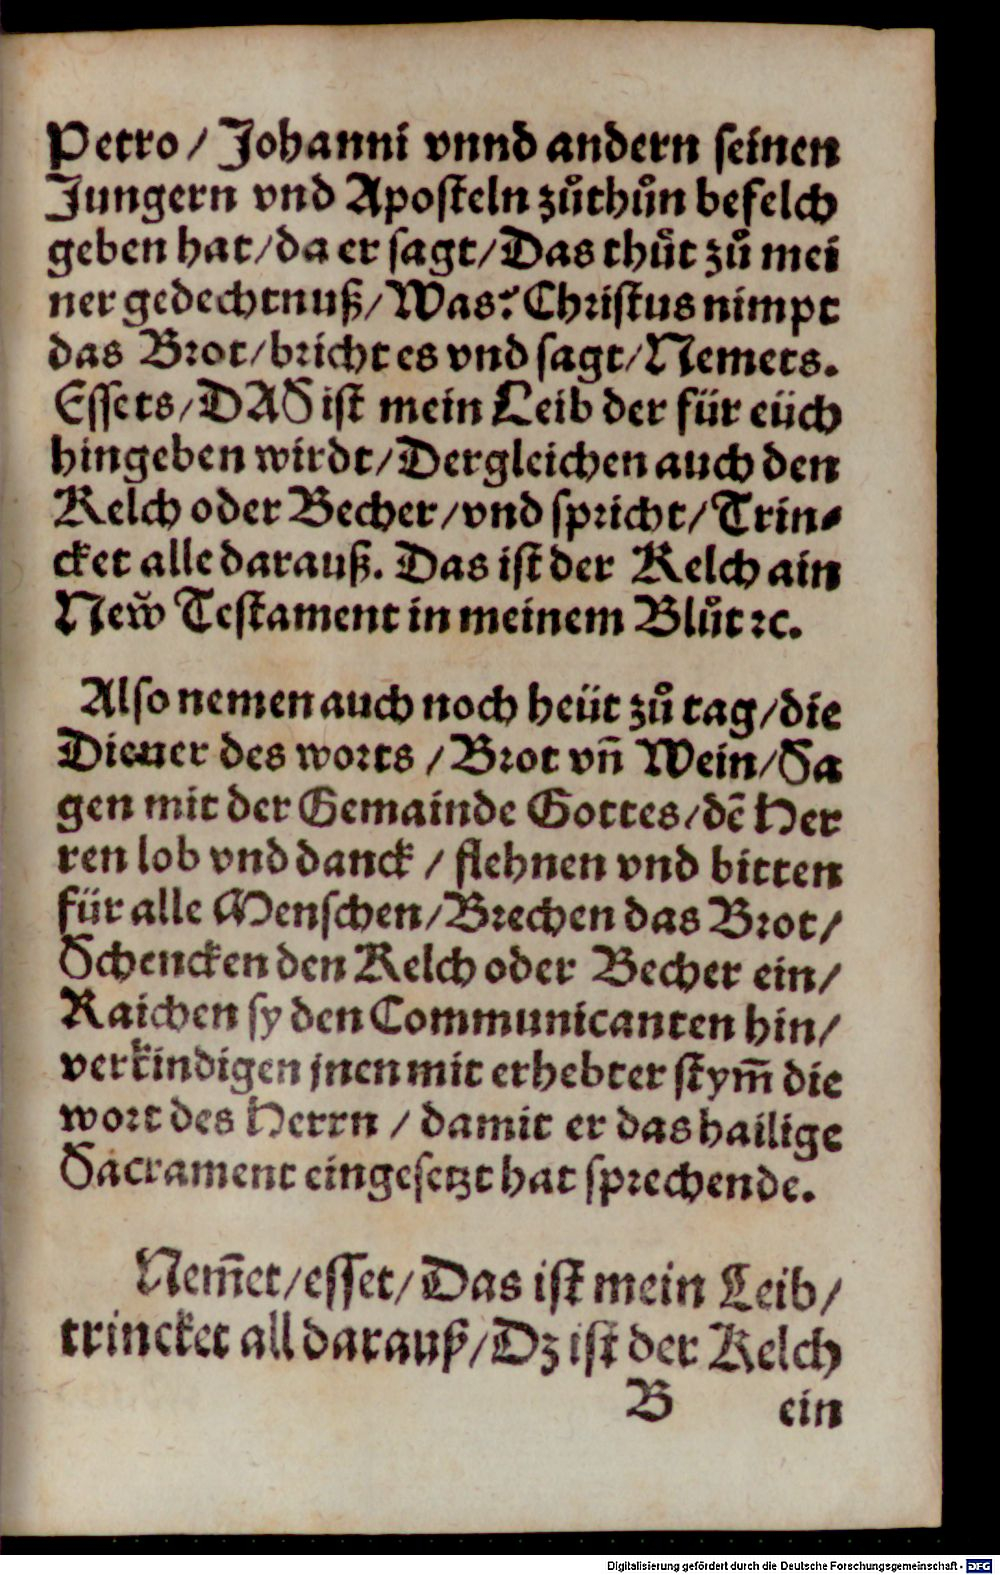 Petro / Johanni vnnd andern seinen
Jungern vnd Aposteln zůthůn befelch
geben hat/da er sagt/Das thůt zů mei
ner gedechtnuß/Was? Christus nimpt
das Brot/bricht es vnd sagt/Nemets.
Essets/DAS ist mein Leib der für eüch
hingeben wirdt/Dergleichen auch den
Kelch oder Becher/vnd spricht/Trin-
cket alle darauß. Das ist der Kelch ain
New̃ Testament in meinem Blůt ꝛc.
Also nemen auch noch heüt zů tag/die
Diener des worts / Brot vñ Wein/Sa
gen mit der Gemainde Gottes/dẽ Her
ren lob vnd danck / flehnen vnd bitten
für alle Menschen/Brechen das Brot/
Schencken den Kelch oder Becher ein/
Raichen sy den Communicanten hin/
verkindigen jnen mit erhebter stym̃ die
wort des Herrn / damit er das hailige
Sacrament eingesetzt hat sprechende.
Nem̃et/esset/Das ist mein Leib/
trincket all darauß/Dz ist der Kelch
B ein
Digitalisierung gefördert durch die Deutsche Forschungsgemeinschaft - DFG